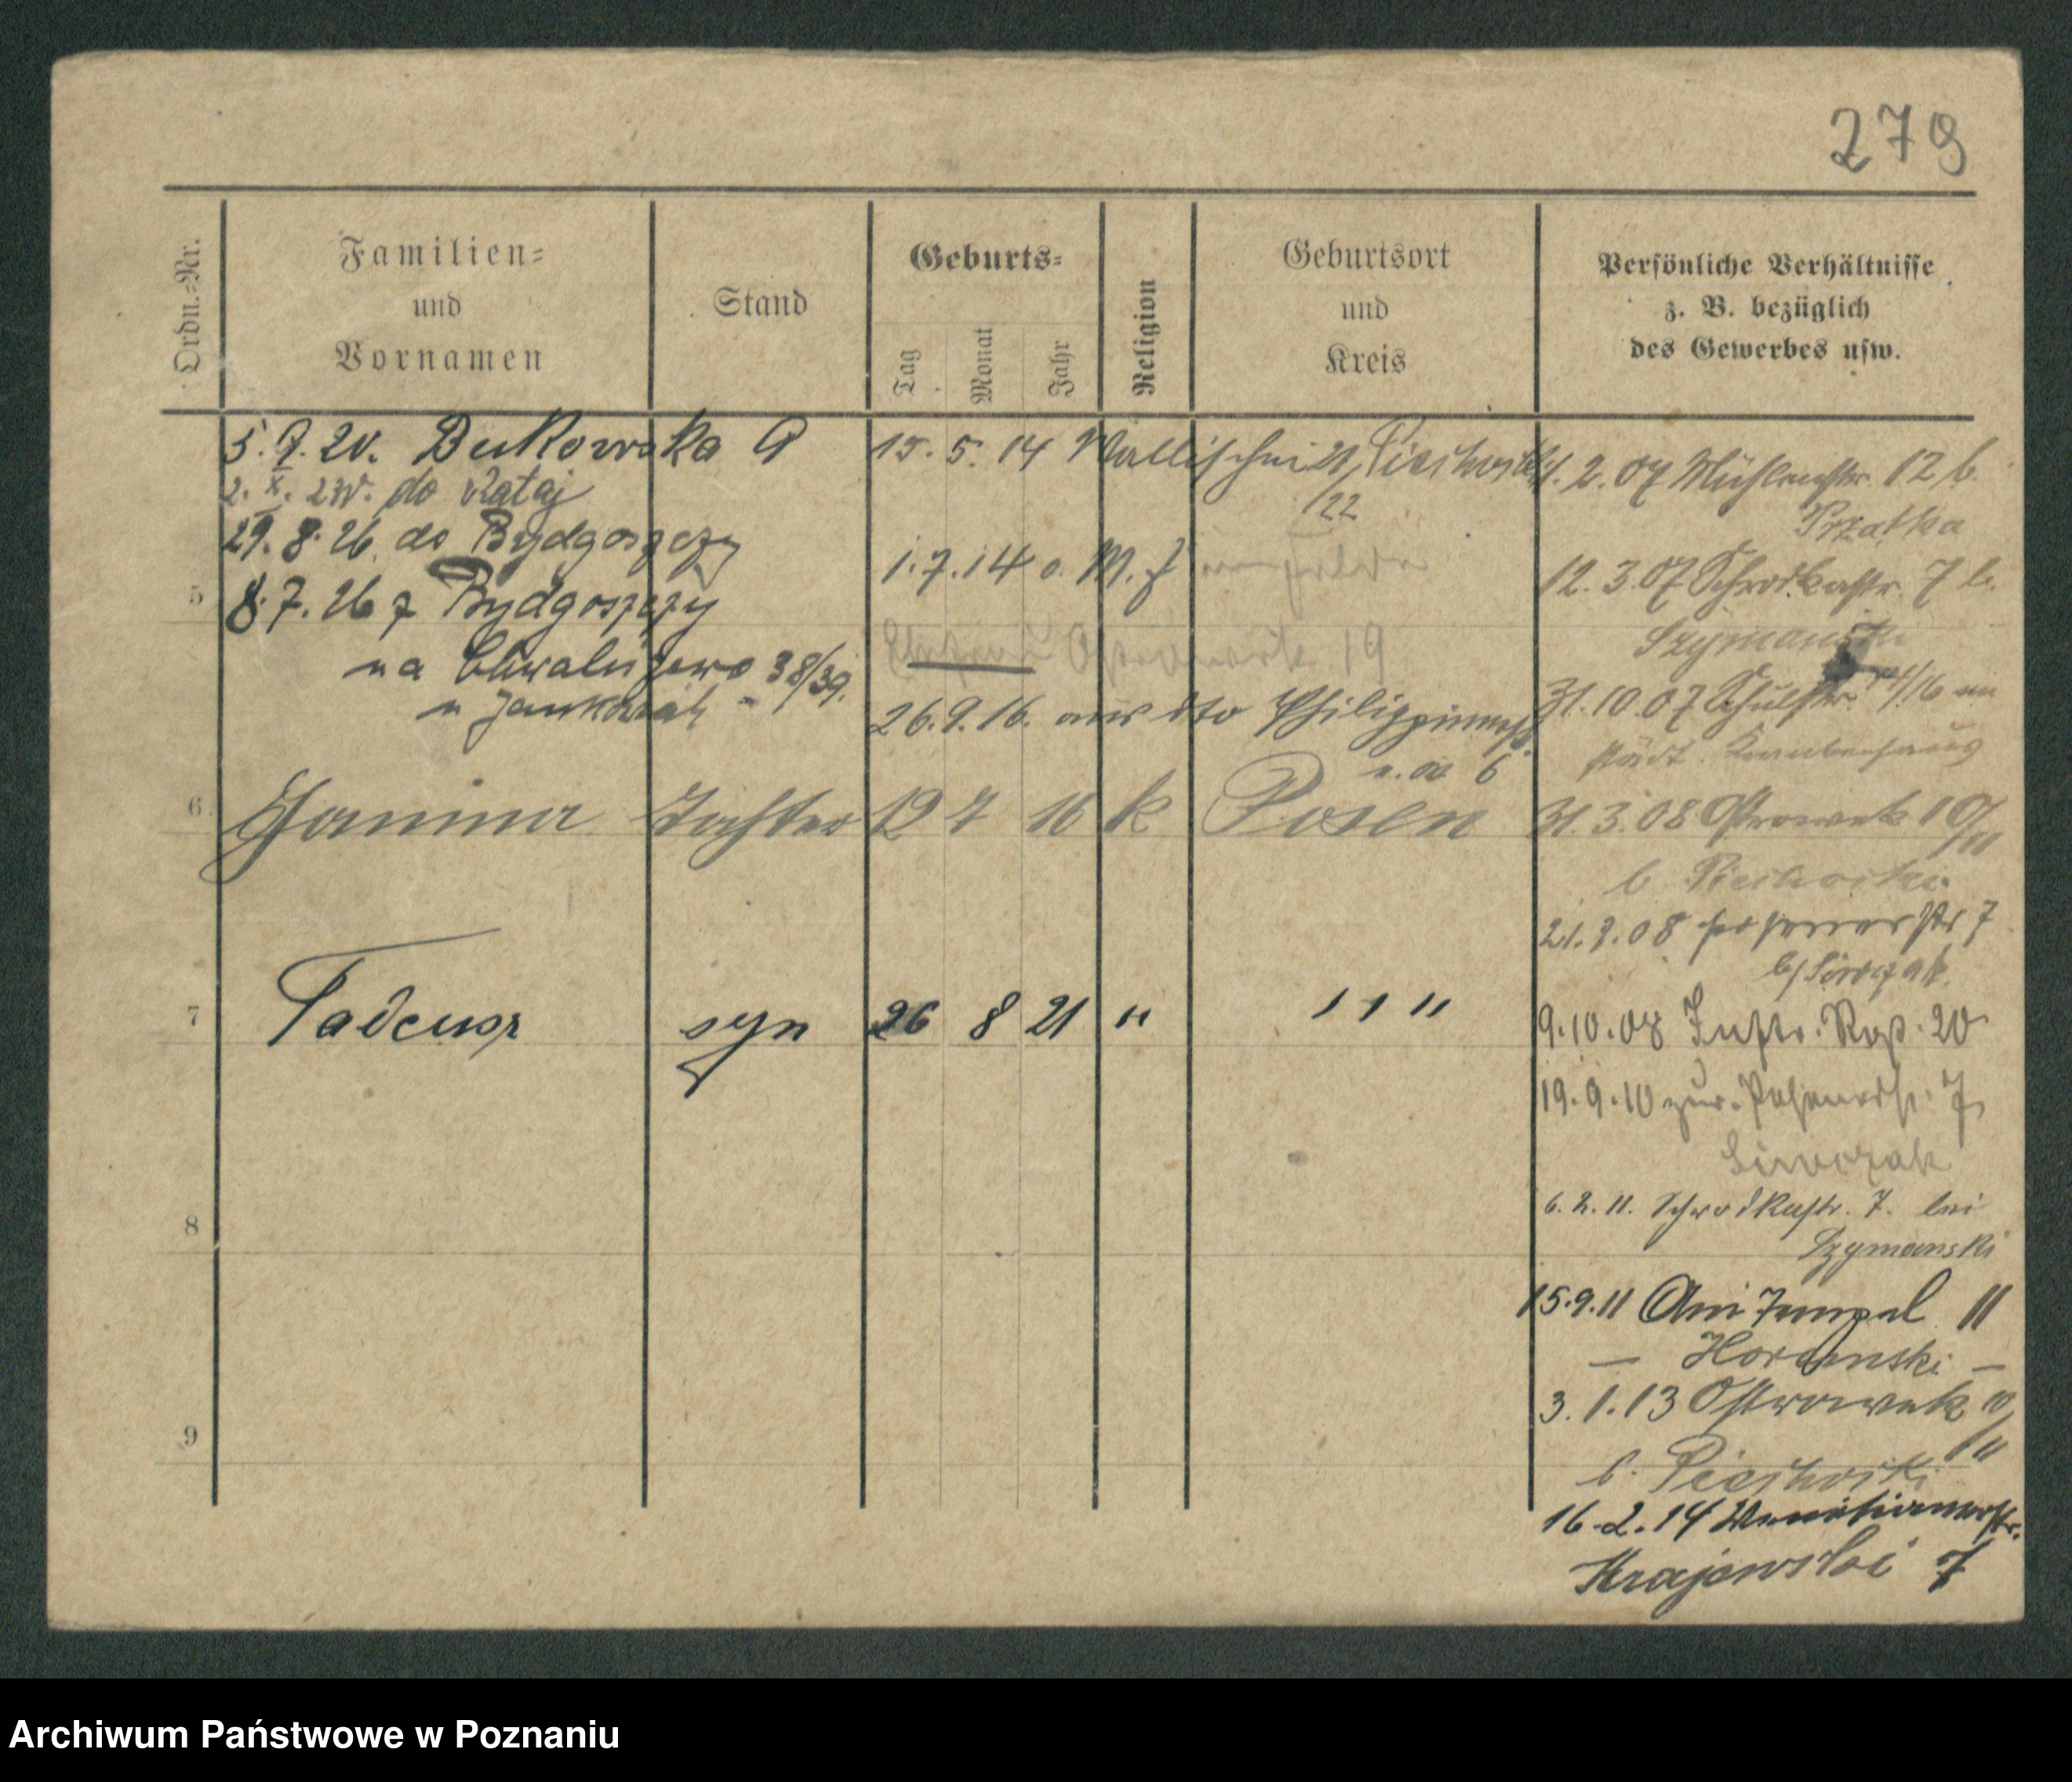 279
Ordn.-Nr.
Familien-
und
Vornamen
Stand
Geburts-
Tag
Monat
Jahr
Religion
Geburtsort
und
Kreis
Persönliche Verhältnisse
z. B. bezüglich
des Gewerbes usw.
5.7.20. Bukowska 9
2. X. 23. do Rataj
29.8.26. do Bydgoszczy
5 8.7.26 z Bydgoszczy
na Chwaliszewo 38/39.
u
15. 5. 14 Wallischei Piechocki
22
1.7.14 o. M. f
Ostrowek 19
26.9.16. aus dto Philippinenstr.
6
6 Janina Tochter 12 7 16 k Posen
7 Tadeusz syn 26 8 21 " " "
8
9
2.07 Mühlenstr. 12 b.
Przatka
12.3.07 Schrodkastr. 7 b.
Szymanski
31.10.07 Schulstr.
städt. Krankenhaus
31.3.08 Ostrowek 10/11
b. Piechocki
21.9.08 Posenerstr 7
b/ Siwczak
9.10.08 Inftr. Rgt. 20
19.9.10 zur. Posenerstr. 7
Siwczak
6.2.11. Schrodkastr. 7. bei
Szymanski
15.9.11 Am Tempel 11
— Horonski —
3.1.13 Ostrowek 10/11
b. Piechocki
16.2.14 Venetianerstr.
Krajewski 7
Archiwum Państwowe w Poznaniu